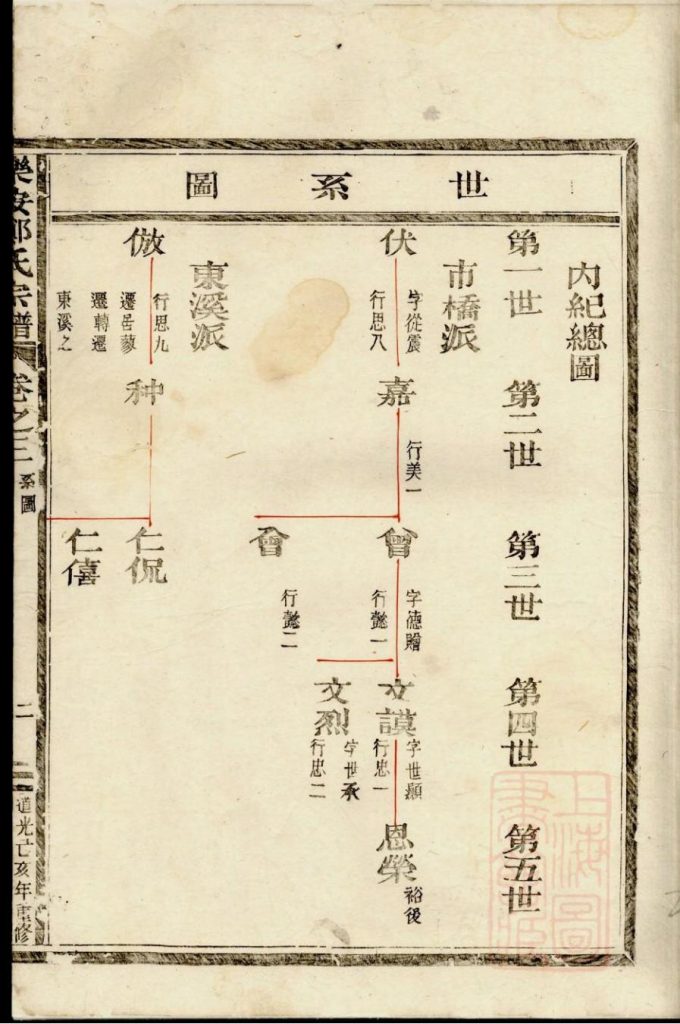 世系圖
内紀總圖
第一世
第二世
第三世
第四世
第五世
市橋派
伏
字從震
行思八
嘉
行美一
曾
字德贈
行懿一
會
行懿二
文謨
字世顯
行忠一
文烈
字世承
行忠二
恩榮
裕後
東溪派
倣
行思九
遷居蓼
遷轉遷
東溪之
种
仁侃
仁僖
樂安
氏宗譜
卷之
系圖
二
道光
亥年重修
上海圖書館藏